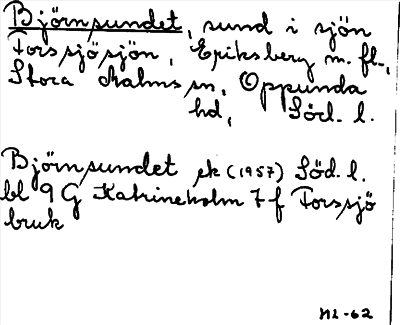 Björnsundet, sund i sjön
Forssjösjön, Eriksberg m. fl.,
Stora Malms sn, Oppunda
hd, Söd. l.
Björnsundet ek (1957) Söd. l.
bl 9 G Katrineholm 7 f Forssjö
bruk